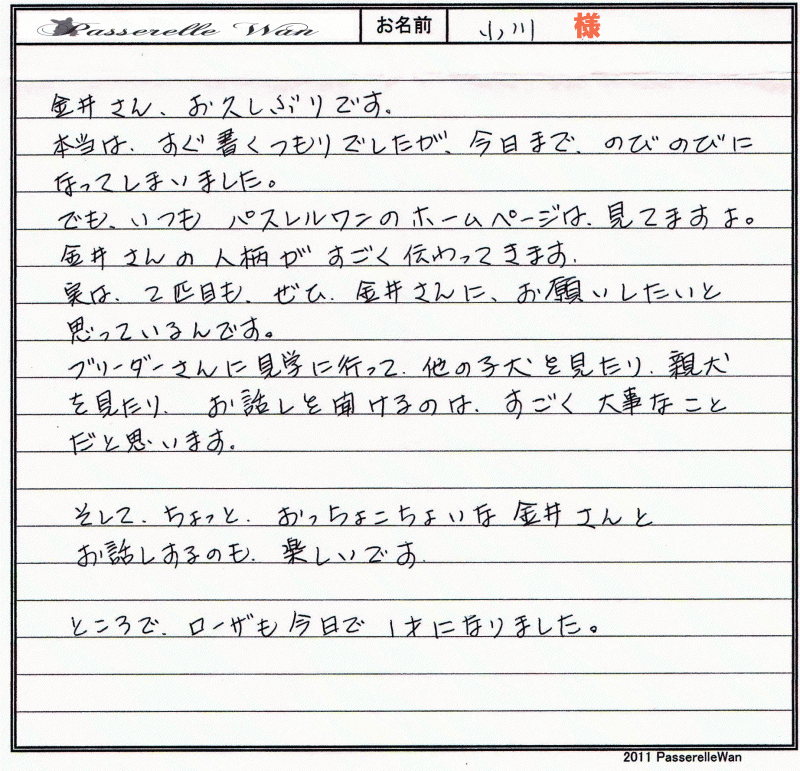 Passerelle Wan お名前 小川 様
金井さん、お久しぶりです。
本当は、すぐ書くつもりでしたが、今日まで、のびのびに
なってしまいました。
でも、いつも パスレルワンのホームページは、見てますよ。
金井さんの人柄がすごく伝わってきます。
実は、2匹目も、ぜひ、金井さんに、お願いしたいと
思っているんです。
ブリーダーさんに見学に行って、他の子犬を見たり、親犬
を見たり、お話しを聞けるのは、すごく大事なこと
だと思います。
そして、ちょっと、おっちょこちょいな金井さんと
お話しするのも、楽しいです。
ところで、ローザも今日で1才になりました。
2011 PasserelleWan